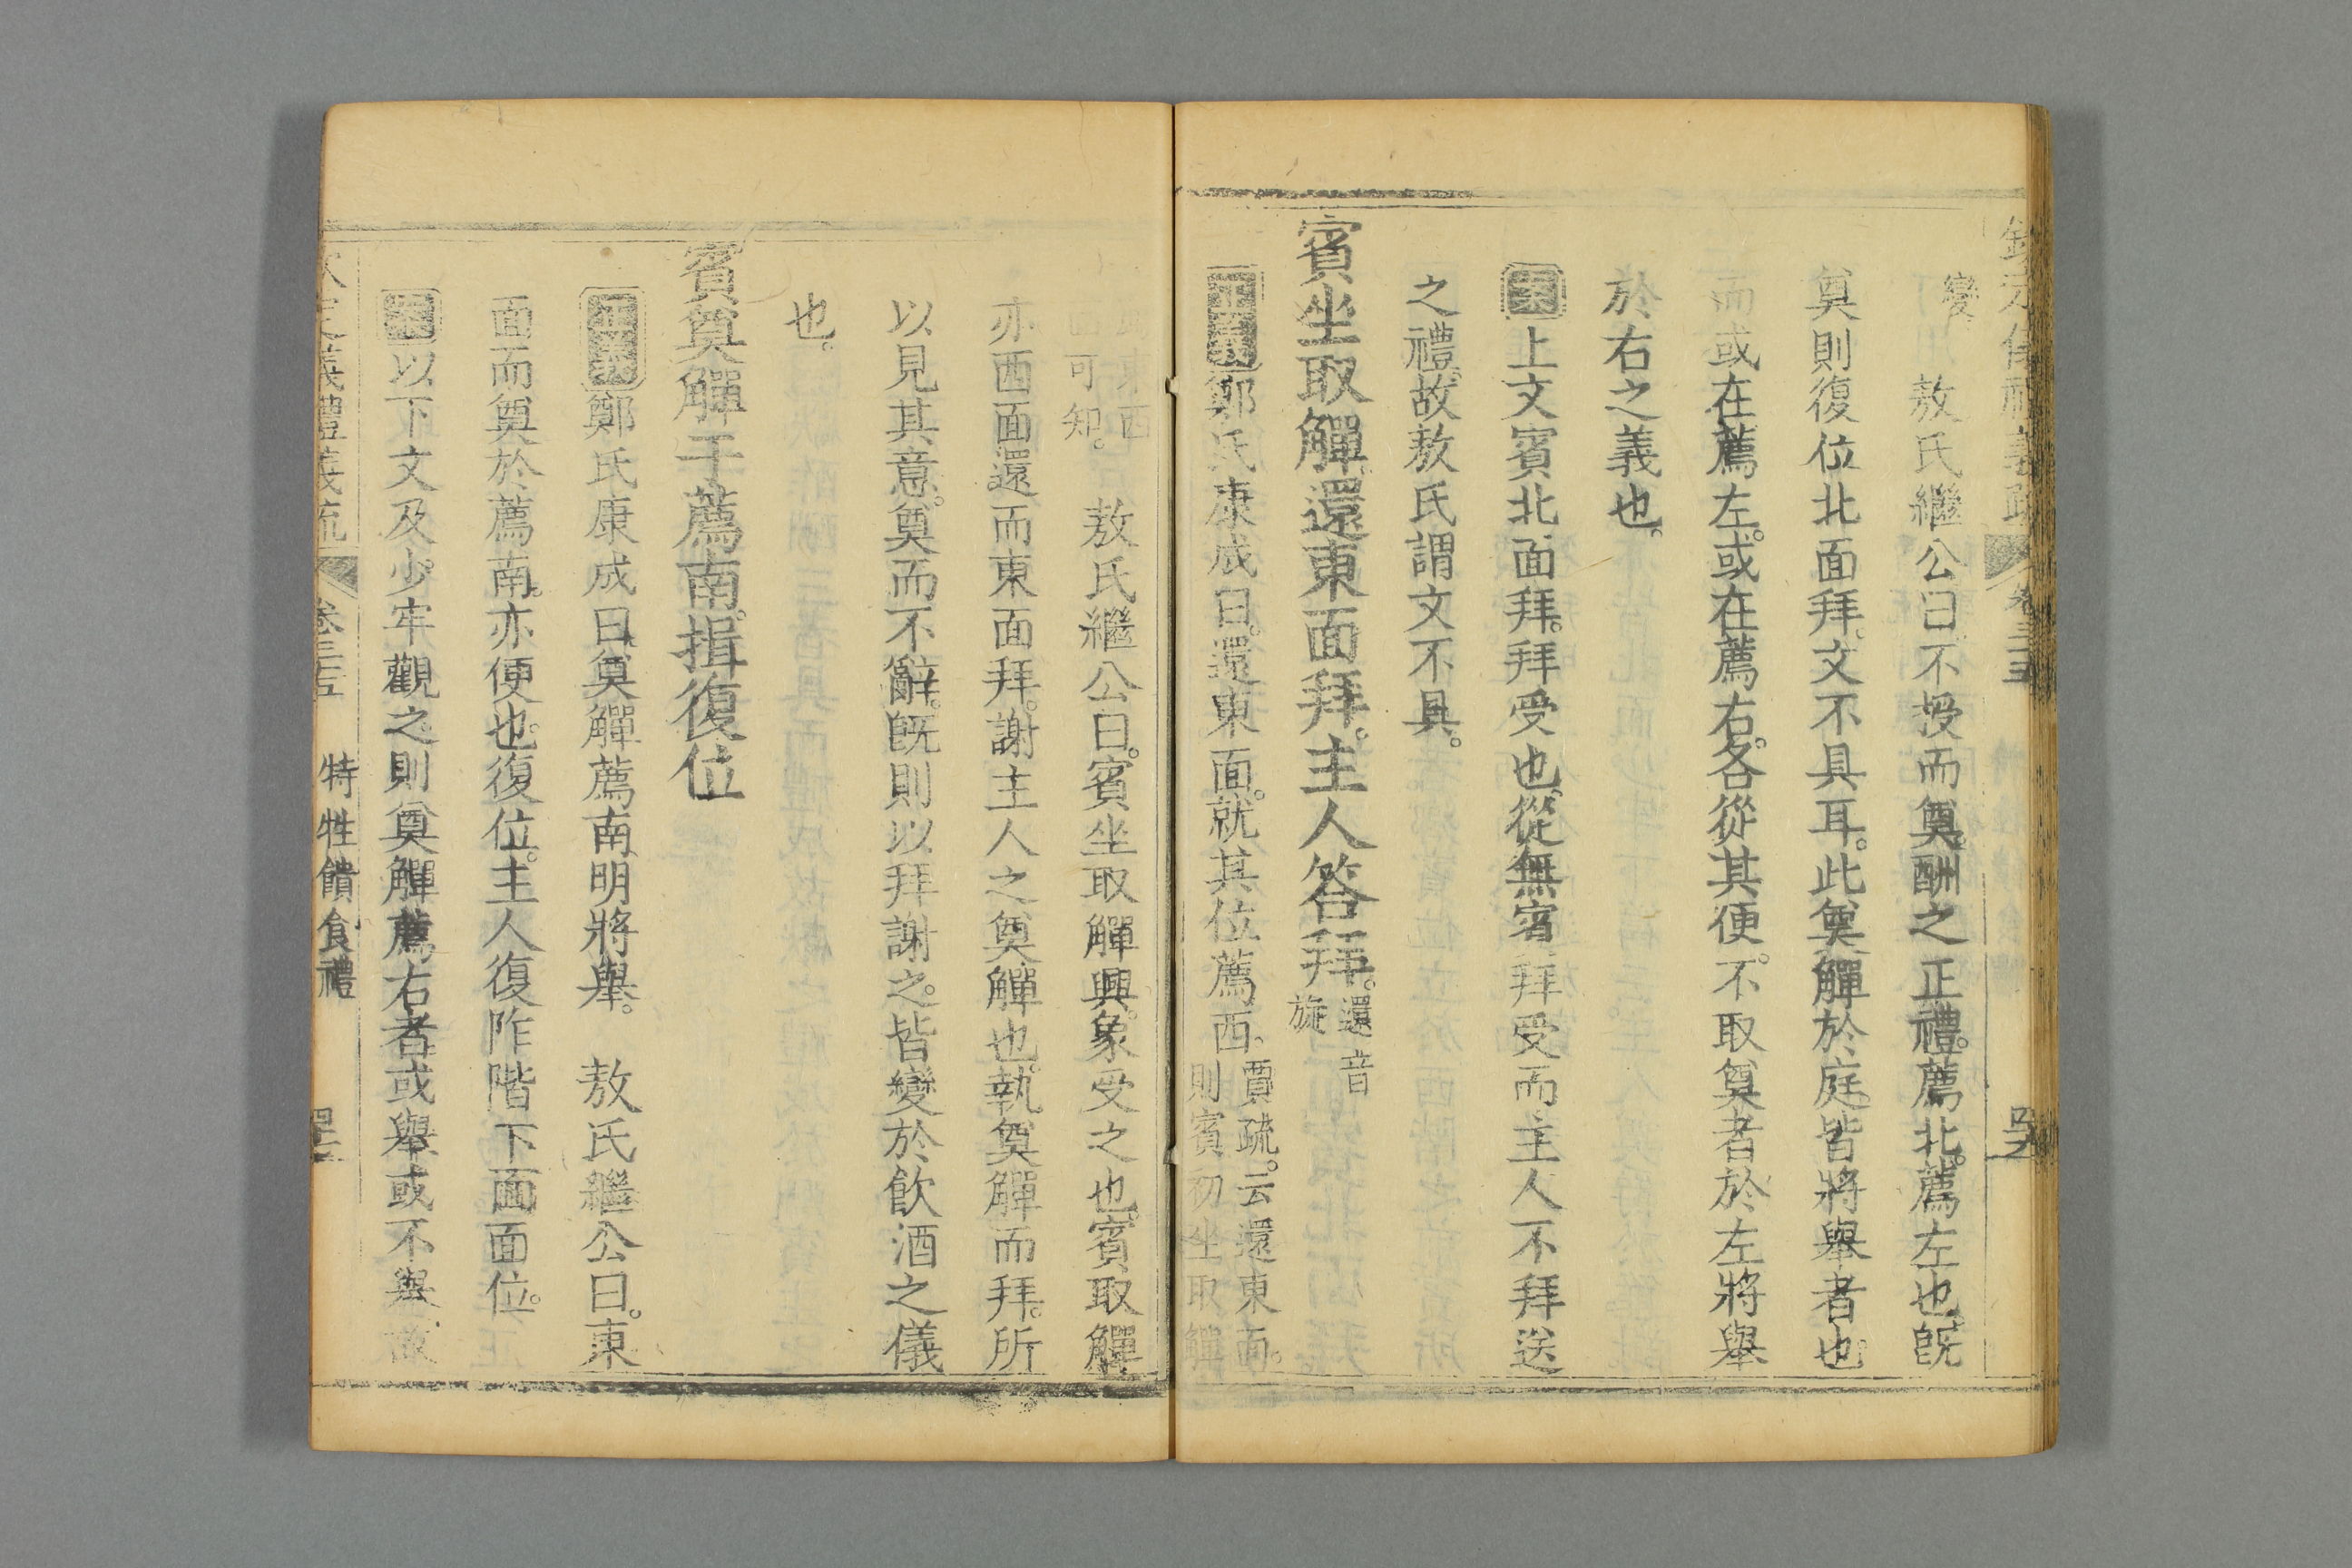 變 敖氏繼公曰不授而奠。酬之正禮。薦北。薦左也。旣
奠則復位北面拜。文不具耳。此奠觶於庭。皆將舉者也
而或在薦左。或在薦右。各從其便。不取奠者於左將舉
於右之義也。
案上文賓北面拜。拜受也。從無奠者拜受而主人不拜送
之禮。故敖氏謂文不具。
賓坐取觶還東面拜。主人答拜。還音
旋
正義鄭氏康成曰。還東面。就其位薦西。賈疏。云還東面。
則賓初坐取觶
西
可知。 敖氏繼公曰。賓坐取觶興。象受之也。賓取觶
亦西面還而東面拜。謝主人之奠觶也。執奠觶而拜。所
以見其意。奠而不辭。旣則以拜謝之。皆變於飲酒之儀
也。
賓奠觶于薦南。揖復位
正義鄭氏康成曰。奠觶薦南。明將舉。 敖氏繼公曰。東
面而奠於薦南。亦便也。復位。主人復阼階下西面位。
案以下文及少牢觀之。則奠觶薦右者或舉或不舉。故
欽定儀禮義疏 卷三十五 特牲饋食禮